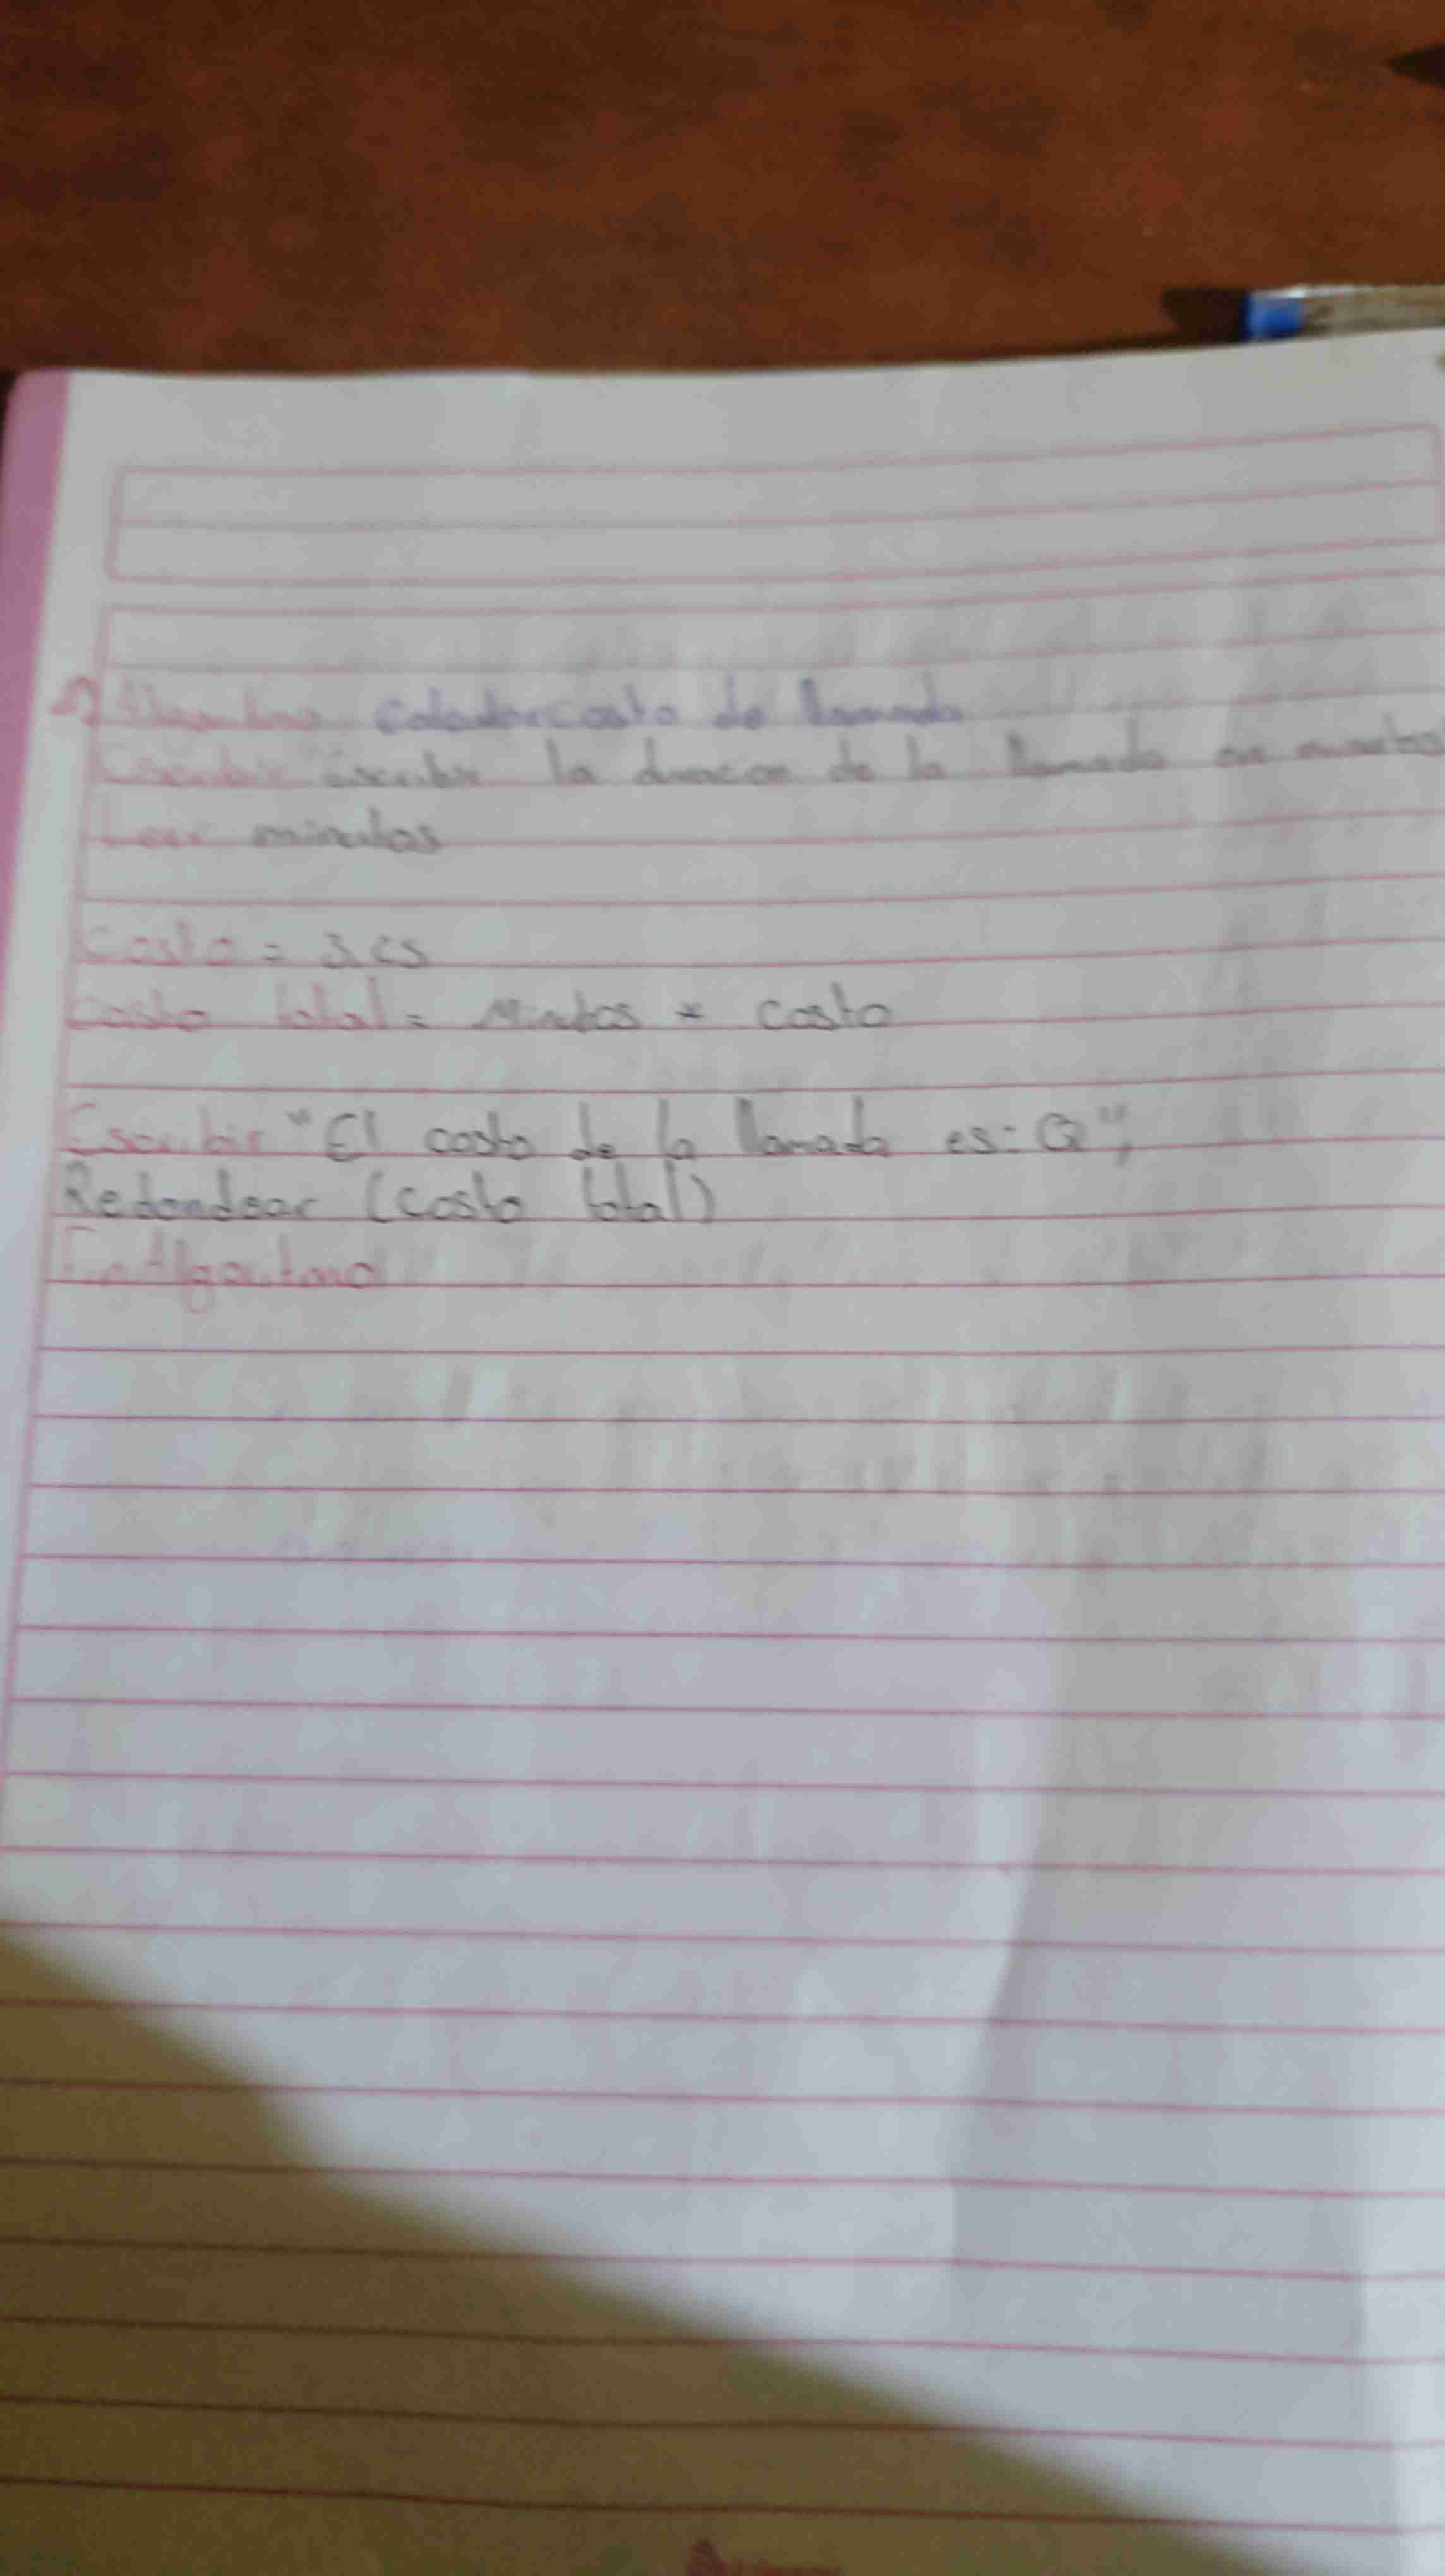 Algoritmo calcularcosto de llamada
Escribir escribir la duracion de la llamada en minutos
Leer minutos
Costo =
Costo total = Minutos * costo
Escribir "El costo de la llamada es: Q",
Redondear (costo total)
FinAlgoritmo